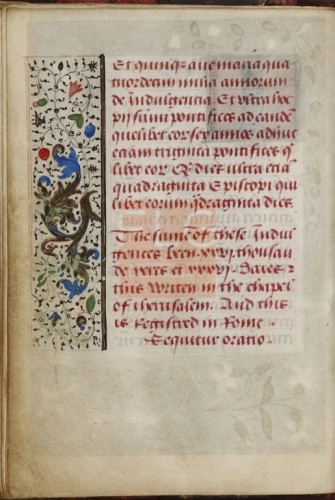 Et quinque ave maria qua
tuordecim milia annorum
de indulgencia Et ultra hec
pii summi pontifices ad eande
quelibet eor sex annos adhuc
eciam triginta pontifices q
libet eor C dies ultra etia
quadraginta Episcopi qui
libet eorum qdraginta dies
The summe of these Indul
gences been xxvi thousan
de yeres et xxxvi Daies &
this writen in the chapel
of Jherusalem. And this
is Registred in Rome.
Sequitur oratio.